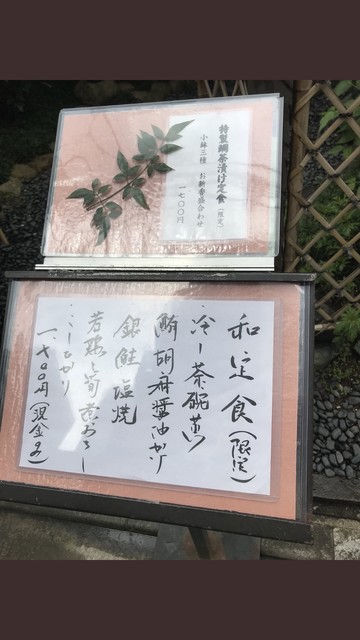 特製鯛茶漬け定食（限定）
小鉢三種　お新香盛合わせ
一七〇〇円
和定食（限定）
・冷し茶碗蒸
胡麻醤油かけ
銀鮭塩焼
・こしひかり
一、七〇〇円（現金のみ）